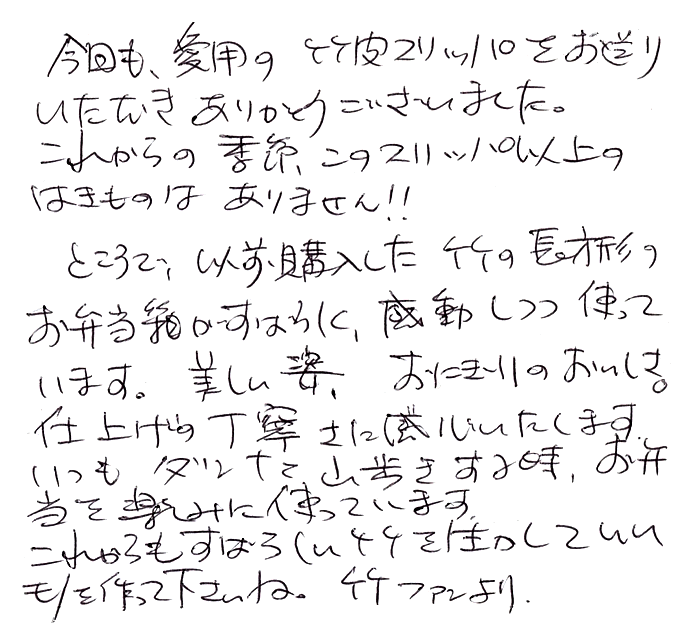 今回も、愛用の竹皮スリッパをお送り
いただきありがとうございました。
これからの季節、このスリッパ以上の
はきものはありません!!
ところで、以前購入した竹の長方形の
お弁当箱がすばらしく、感動しつつ使って
います。美しい姿、おにぎりのおいしさ。
仕上げの丁寧さに感心いたします。
いつもダンナと山歩きする時、お弁
当を楽しみに使っています。
これからもすばらしい竹を生かしていい
モノを作って下さいね。竹ファンより.